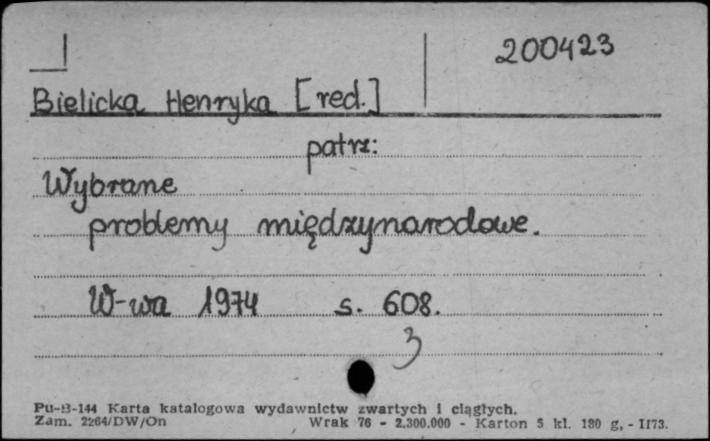 200423
Bielicka Henryka [red.]
patrz:
Wybrane
problemy międzynarodowe.
W-wa 1974 s. 608.
3
Pu-B-144 Karta katalogowa wydawnictw zwartych i ciągłych.
Zam. 2264/DW/On Wrak 76 - 2.300.000 - Karton 5 kl. 180 g, - II73.